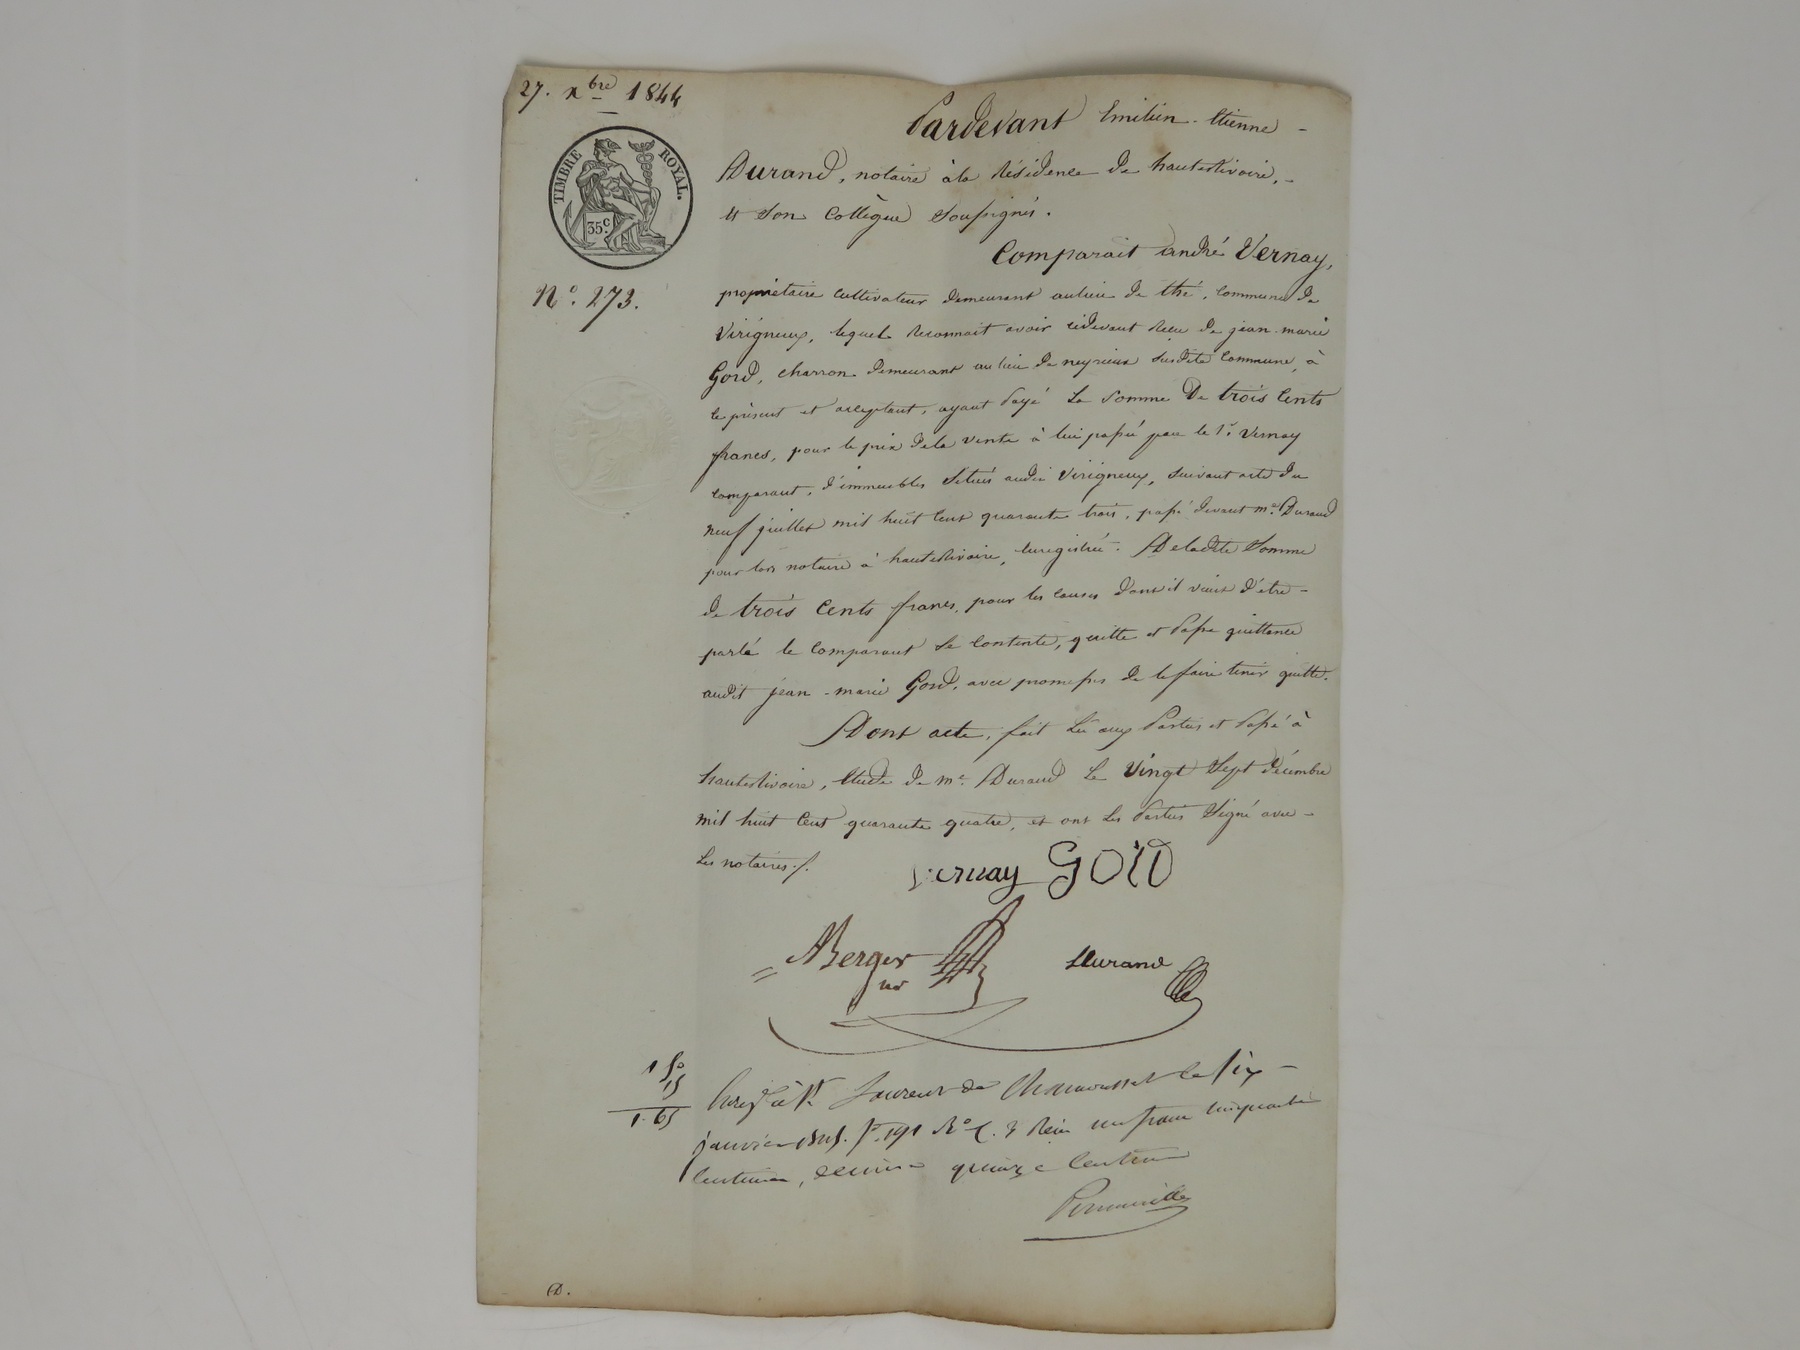 27. xbre 1844
TIMBRE ROYAL.
35c.
N° 273.
Pardevant Emilien-Etienne -
Durand, notaire à la Résidence de hauterivoire, -
et son Collègue soussignés.
Comparait andré Vernay,
propriétaire cultivateur demeurant au lieu de thé, commune de
Virigneux, lequel Reconnait avoir cidevant Reçu de jean-marie
Gord, charron demeurant au lieu de neyrieux susdite Commune, à
ce présent et acceptant, ayant Payé La Somme De trois Cents
francs, pour le prix dela vente à lui passée par le sr. Vernay
comparant, d'immeubles Situés audit Virigneux, Suivant acte du
neuf juillet mil huit Cent quarante trois, passé devant me. Durand
pour lors notaire à hauterivoire, Enregistré. De ladite Somme
de trois Cents francs, pour les causes dont il vient d'être -
parlé le Comparant Se Contente, quitte et Passe quittance
audit jean-marie Gord, avec promesses de le faire tenir quitte.
Dont acte, fait Lû aux Parties et Passé à
hauterivoire, Etude de me. Durand Le Vingt Sept décembre
mil huit Cent quarante quatre, et ont Les Parties Signé avec -
Les notaires./.
Vernay GOrD
Berger
nre
Durand
1 50
15
1.65
Enregé à St Laurent de Chamousset le six -
janvier 1845. f° 191 R° C. 7 Reçu un franc cinquante
Centimes, décime quinze Centimes
D.